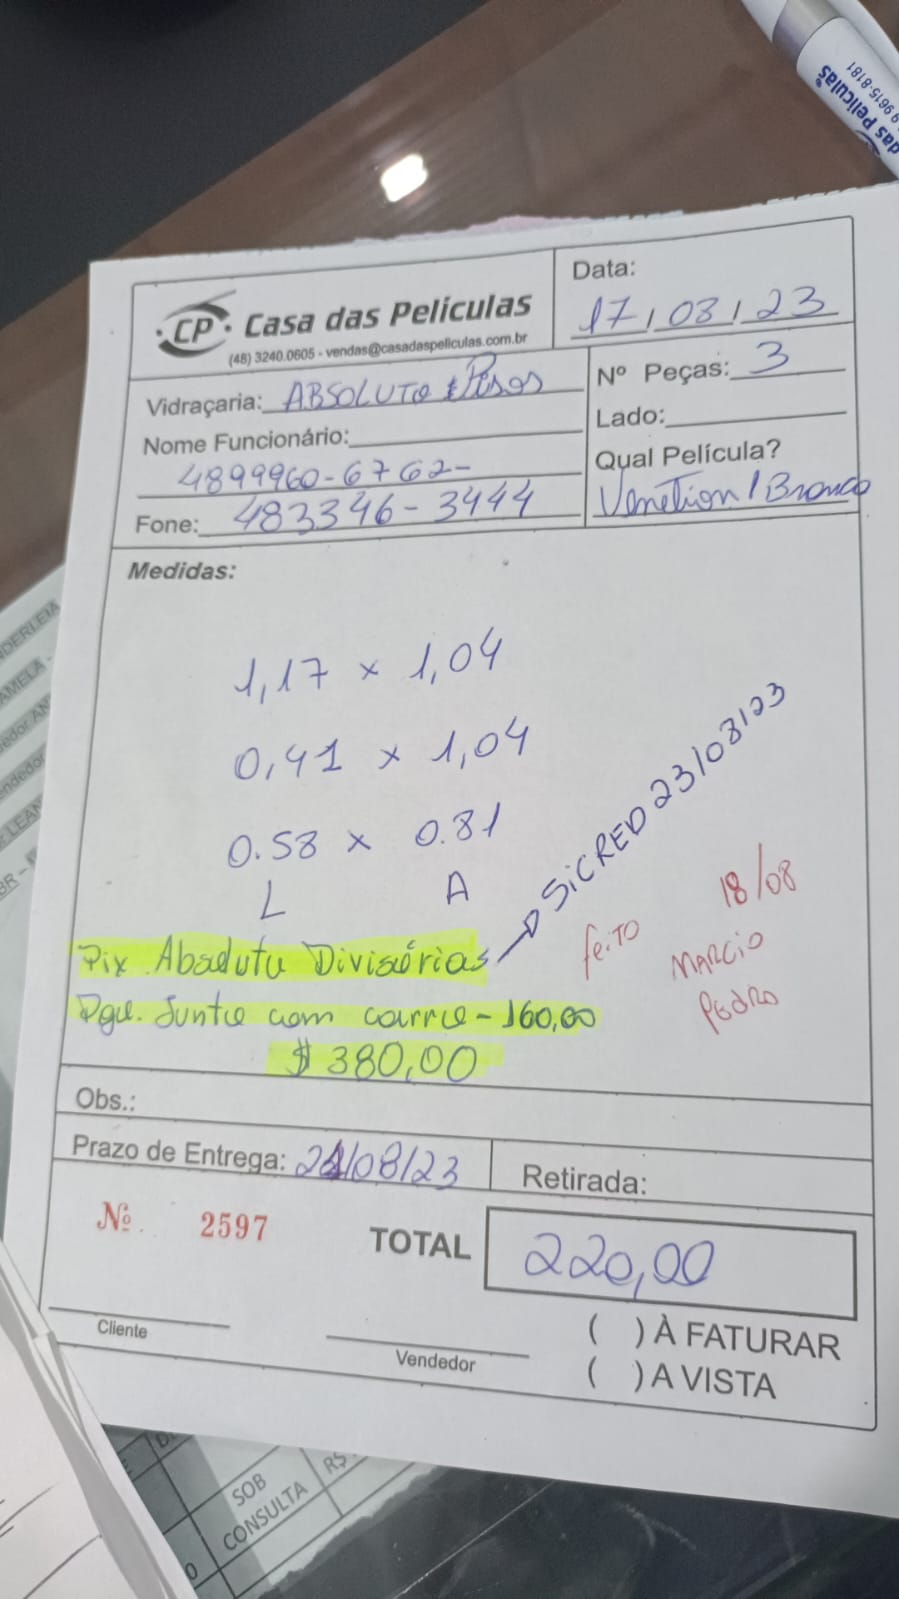 das Películas
9615-8181
CP Casa das Películas
(48) 3240.0605 - vendas@casadaspeliculas.com.br
Data:
17/08/23
Vidraçaria: ABSOLUTO Pisos
Nº Peças: 3
Nome Funcionário:
Lado:
4899960-6762-
Qual Película?
Fone: 483346-3444
Venetion/Branco
Medidas:
1,17 x 1,04
0,41 x 1,04
0.58 x 0.81
L A
SiCRED 23/08/23
feito 18/08
MARCIO
PEDRO
Pix Absolutu Divisórias
Pgu. Juntu com carru - 160,00
$ 380,00
Obs.:
Prazo de Entrega: 21/08/23
Retirada:
Nº. 2597
TOTAL 220,00
Cliente
Vendedor
( ) À FATURAR
( ) A VISTA
SOB
CONSULTA
R$
NDERLEIA
AMELA -
edor AN
endedor
LEAN
BR -